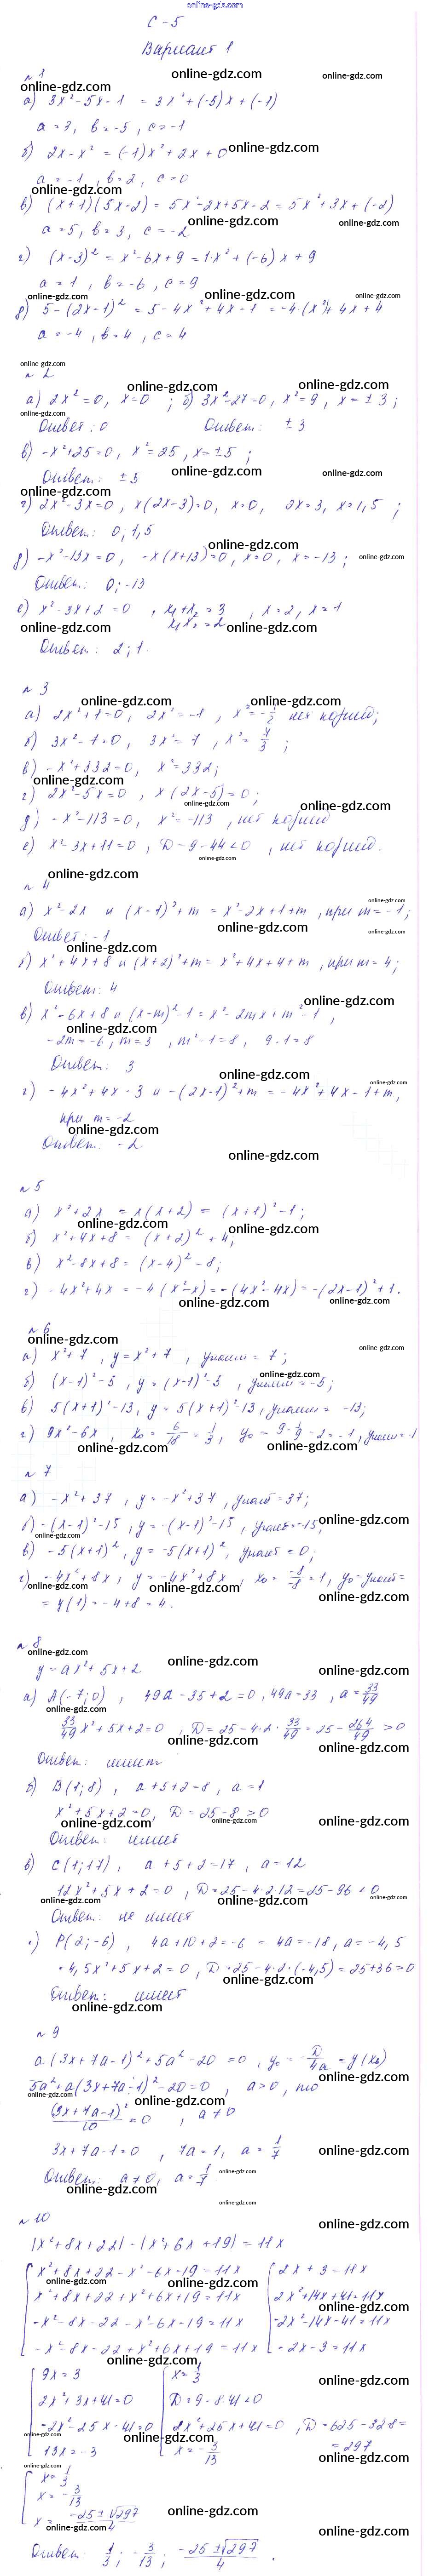 online-gdz.com
С-5
Вариант 1
№1
а) 3x²-5x-1 = 3x²+(-5)x+(-1)
a=3, b=-5, c=-1
б) 2x-x² = (-1)x²+2x+0
a=-1, b=2, c=0
в) (x+1)(5x-2) = 5x²-2x+5x-2 = 5x²+3x+(-2)
a=5, b=3, c=-2
г) (x-3)² = x²-6x+9 = 1·x²+(-6)x+9
a=1, b=-6, c=9
д) 5-(2x-1)² = 5-4x²+4x-1 = -4·(x²)+4x+4
a=-4, b=4, c=4
№2
а) 2x²=0, x=0 ; б) 3x²-27=0, x²=9, x=±3;
Ответ: 0 Ответ: ±3
в) -x²+25=0, x²=25, x=±5;
Ответ: ±5
г) 2x²-3x=0, x(2x-3)=0, x=0, 2x=3, x=1,5 ;
Ответ: 0; 1,5
д) -x²-13x=0, -x(x+13)=0, x=0, x=-13;
Ответ: 0; -13
е) x²-3x+2=0 , x₁+x₂=3 , x=2, x=1
x₁x₂=2
Ответ: 2; 1.
№3
а) 2x²+1=0, 2x²=-1, x²=-1/2 нет корней;
б) 3x²-7=0, 3x²=7, x²=7/3 ;
в) -x²+332=0, x²=332;
г) 2x²-5x=0, x(2x-5)=0;
д) -x²-113=0, x²=-113, нет корней
е) x²-3x+11=0, D=9-44<0, нет корней.
№4
а) x²-2x и (x-1)²+m = x²-2x+1+m, при m=-1;
Ответ: -1
б) x²+4x+8 и (x+2)²+m = x²+4x+4+m, при m=4;
Ответ: 4
в) x²-6x+8 и (x-m)²-1 = x²-2mx+m²-1,
-2m=-6, m=3, m²-1=8, 9-1=8
Ответ: 3
г) -4x²+4x-3 и -(2x-1)²+m = -4x²+4x-1+m,
при m=-2
Ответ: -2
№5
а) x²+2x = x(x+2) = (x+1)²-1;
б) x²+4x+8 = (x+2)²+4;
в) x²-8x+8 = (x-4)²-8;
г) -4x²+4x = -4(x²-x) = -(4x²-4x) = -(2x-1)²+1.
№6
а) x²+7, y=x²+7, yнаим=7;
б) (x-1)²-5, y=(x-1)²-5, yнаим=-5;
в) 5(x+1)²-13, y=5(x+1)²-13, yнаим=-13;
г) 9x²-6x, x₀=6/18=1/3, y₀=9·1/9-2=-1, yнаим=-1
№7
а) -x²+37, y=-x²+37, yнаиб=37;
б) -(x-1)²-15, y=-(x-1)²-15, yнаиб=-15;
в) -5(x+1)², y=-5(x+1)², yнаиб=0;
г) -4x²+8x, y=-4x²+8x, x₀=-8/-8=1, y₀=yнаиб=
=y(1)=-4+8=4.
№8
y=ax²+5x+2
а) A(-7;0), 49a-35+2=0, 49a=33, a=33/49
33/49x²+5x+2=0, D=25-4·2·33/49=25-264/49>0
Ответ: имеет
б) B(1;8), a+5+2=8, a=1
x²+5x+2=0, D=25-8>0
Ответ: имеет
в) C(1;17), a+5+2=17, a=12
12x²+5x+2=0, D=25-4·2·12=25-96<0
Ответ: не имеет
г) P(2;-6), 4a+10+2=-6 - 4a=-18, a=-4,5
-4,5x²+5x+2=0, D=25-4·2·(-4,5)=25+36>0
Ответ: имеет
№9
a(3x+7a-1)²+5a²-20=0, y₀=-D/4a=y(x₀)
5a²+a(3x+7a-1)²-20=0, a>0, то
(3x+7a-1)²/10=0, a≠0
3x+7a-1=0, 7a=1, a=1/7
Ответ: a≠0, a=1/7
№10
|x²+8x+22|-|x²+6x+19|=11x
x²+8x+22-x²-6x-19=11x 2x+3=11x
x²+8x+22+x²+6x+19=11x 2x²+14x+41=11x
-x²-8x-22-x²-6x-19=11x -2x²-14x-41=11x
-x²-8x-22+x²+6x+19=11x -2x-3=11x
9x=3 x=1/3
2x²+3x+41=0 D=9-8·41<0
-2x²-25x-41=0 2x²+25x+41=0, D=625-328=
13x=-3 x=-3/13 =297
x=1/3
x=-3/13
x=-25±√297/4
Ответ: 1/3; -3/13; -25±√297/4.